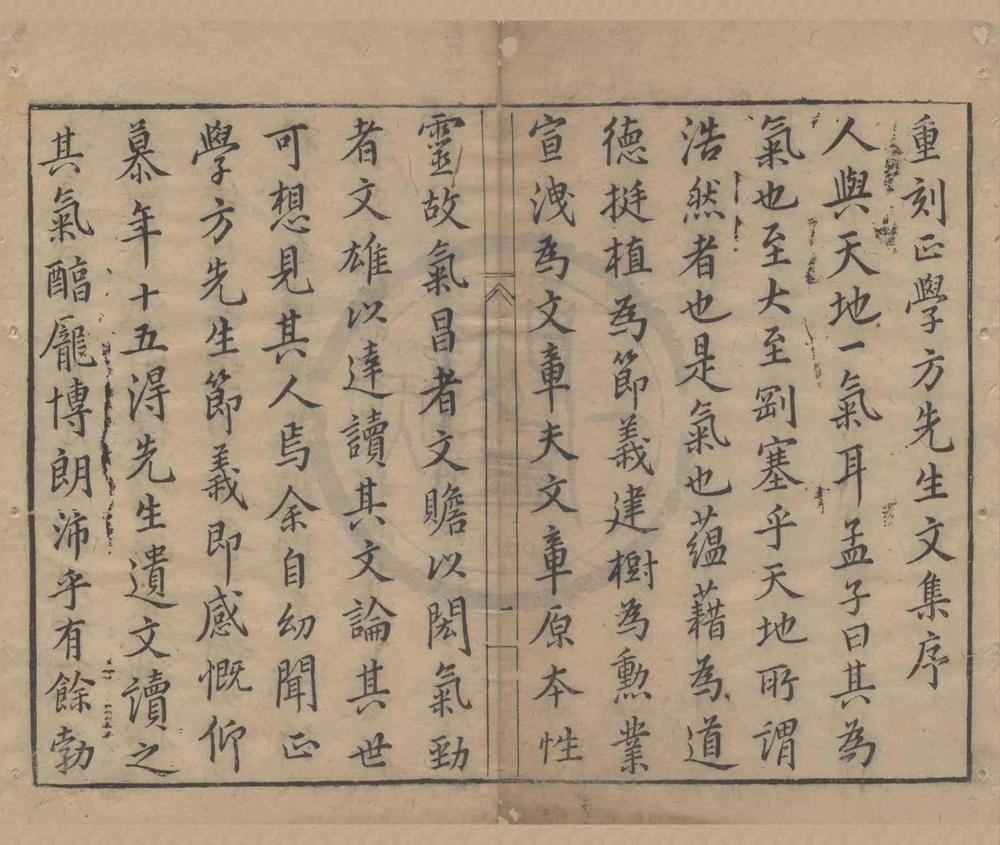 重刻正學方先生文集序
人與天地一氣耳孟子曰其為
氣也至大至剛塞乎天地所謂
浩然者也是氣也蘊藉為道
德挺植為節義建樹為勲業
宣洩為文章夫文章原本性
靈故氣昌者文贍以閎氣勁
者文雄以達讀其文論其世
可想見其人焉余自幼聞正
學方先生節義即感慨仰
慕年十五得先生遺文讀之
其氣醕龎博朗沛乎有餘勃